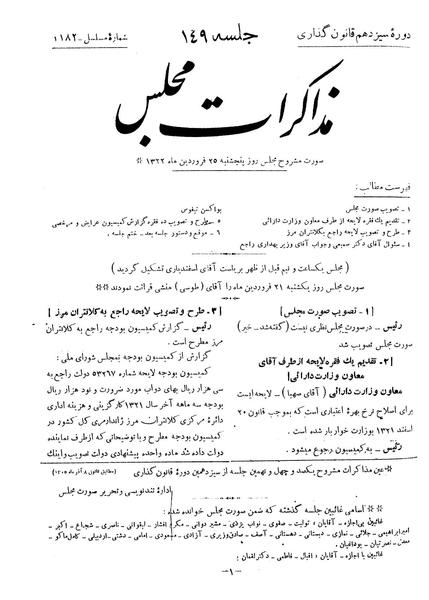 دورهٔ سیزدهم قانون گذاری
جلسه ۱۴۹
شمارهٔ مسلسل - ۱۱۸۲
مذاکرات مجلس
صورت مشروح مجلس روز پنجشنبه ۲۵ فروردین ماه ۱۳۲۲ ※
فهرست مطالب:
۱ - تصویب صورت مجلس
۲ - تقدیم یك فقره لایحه از طرف معاون وزارت دارائی
۳ - طرح و تصویب لایحه راجع بکلانتران مرز
٤ - سئوال آقای دکتر سمیعی و جواب آقای وزیر بهداری راجع
بواکسن تیفوس
۵ - طرح و تصویب ده فقره گزارش کمیسیون عرایض و مرخصی
۶ - موقع و دستور جلسه بعد - ختم جلسه .
( مجلس یکساعت و نیم قبل از ظهر بریاست آقای اسفندیاری تشکیل گردید )
صورت مجلس روز یکشنبه ۲۱ فروردین ماه را آقای ( طوسی ) منشی قرائت نمودند ※
[ ۱ - تصویب صورت مجلس ]
رئیس - در صورت مجلس نظری نیست ( گفته شد - خیر )
صورت مجلس تصویب شد
[ ۲ - تقدیم یك فقره لایحه از طرف آقای
معاون وزارت دارائی ]
معاون وزارت دارائی ( آقای سهیا ) - لایحه ایست
برای اصلاح نرخ بهرهٔ اعتباری است که بموجب قانون ۲۰
اسفند ۱۳۲۱ بوزارت خواربار شده است .
رئیس - به کمیسیون رجوع میشود .
[ ۳ - طرح و تصویب لایحه راجع به کلانتران مرز ]
رئیس - گزارش کمیسیون بودجه راجع به کلانتران
مرز مطرح است .
گزارش از کمیسیون بودجه بمجلس شورای ملی :
کمیسیون بودجه لایحه شماره ۵۳۲۶۷ دولت راجع به
سی هزار ریال بهای دواب مورد ضرورت و نود هزار ریال
بودجه سه ماهه آخر سال ۱۳۲۱ کارگزینی و هزینه اداری
دائره مرکزی کلانتران مرز ژاندارمری کل کشور در
کمیسیون بودجه مطرح و با توضیحاتی که از طرف نماینده
دولت داده شد ماده واحده پیشنهادی دولت تصویب و اینك
※ عین مذاکرات مشروح یکصد و چهل و نهمین جلسه از سیزدهمین دورهٔ قانون گذاری
ادارهٔ تندنویسی و تحریر صورت مجلس
※ اسامی غائبین جلسه گذشته که ضمن صورت مجلس خوانده شده :
غائبین بی اجازه - آقایان : تولیت - صفوی - نواب یزدی - مشیر دوانی - مکرم افشار - ایلخانی - ناصری - شجاع - اکبر -
امیر ابراهیمی - جلائی - نمازی - دبستانی - دهستانی - آصف - صادق وزیری - آزادی - مسعودی - امامی - دشتی - اردبیلی - کامل ماکو -
معدل - نصرتیان - بوداغیان .
غائبین با اجازه - آقایان : اقبال - فاطمی - دکتر لقمان :
- ۱ -